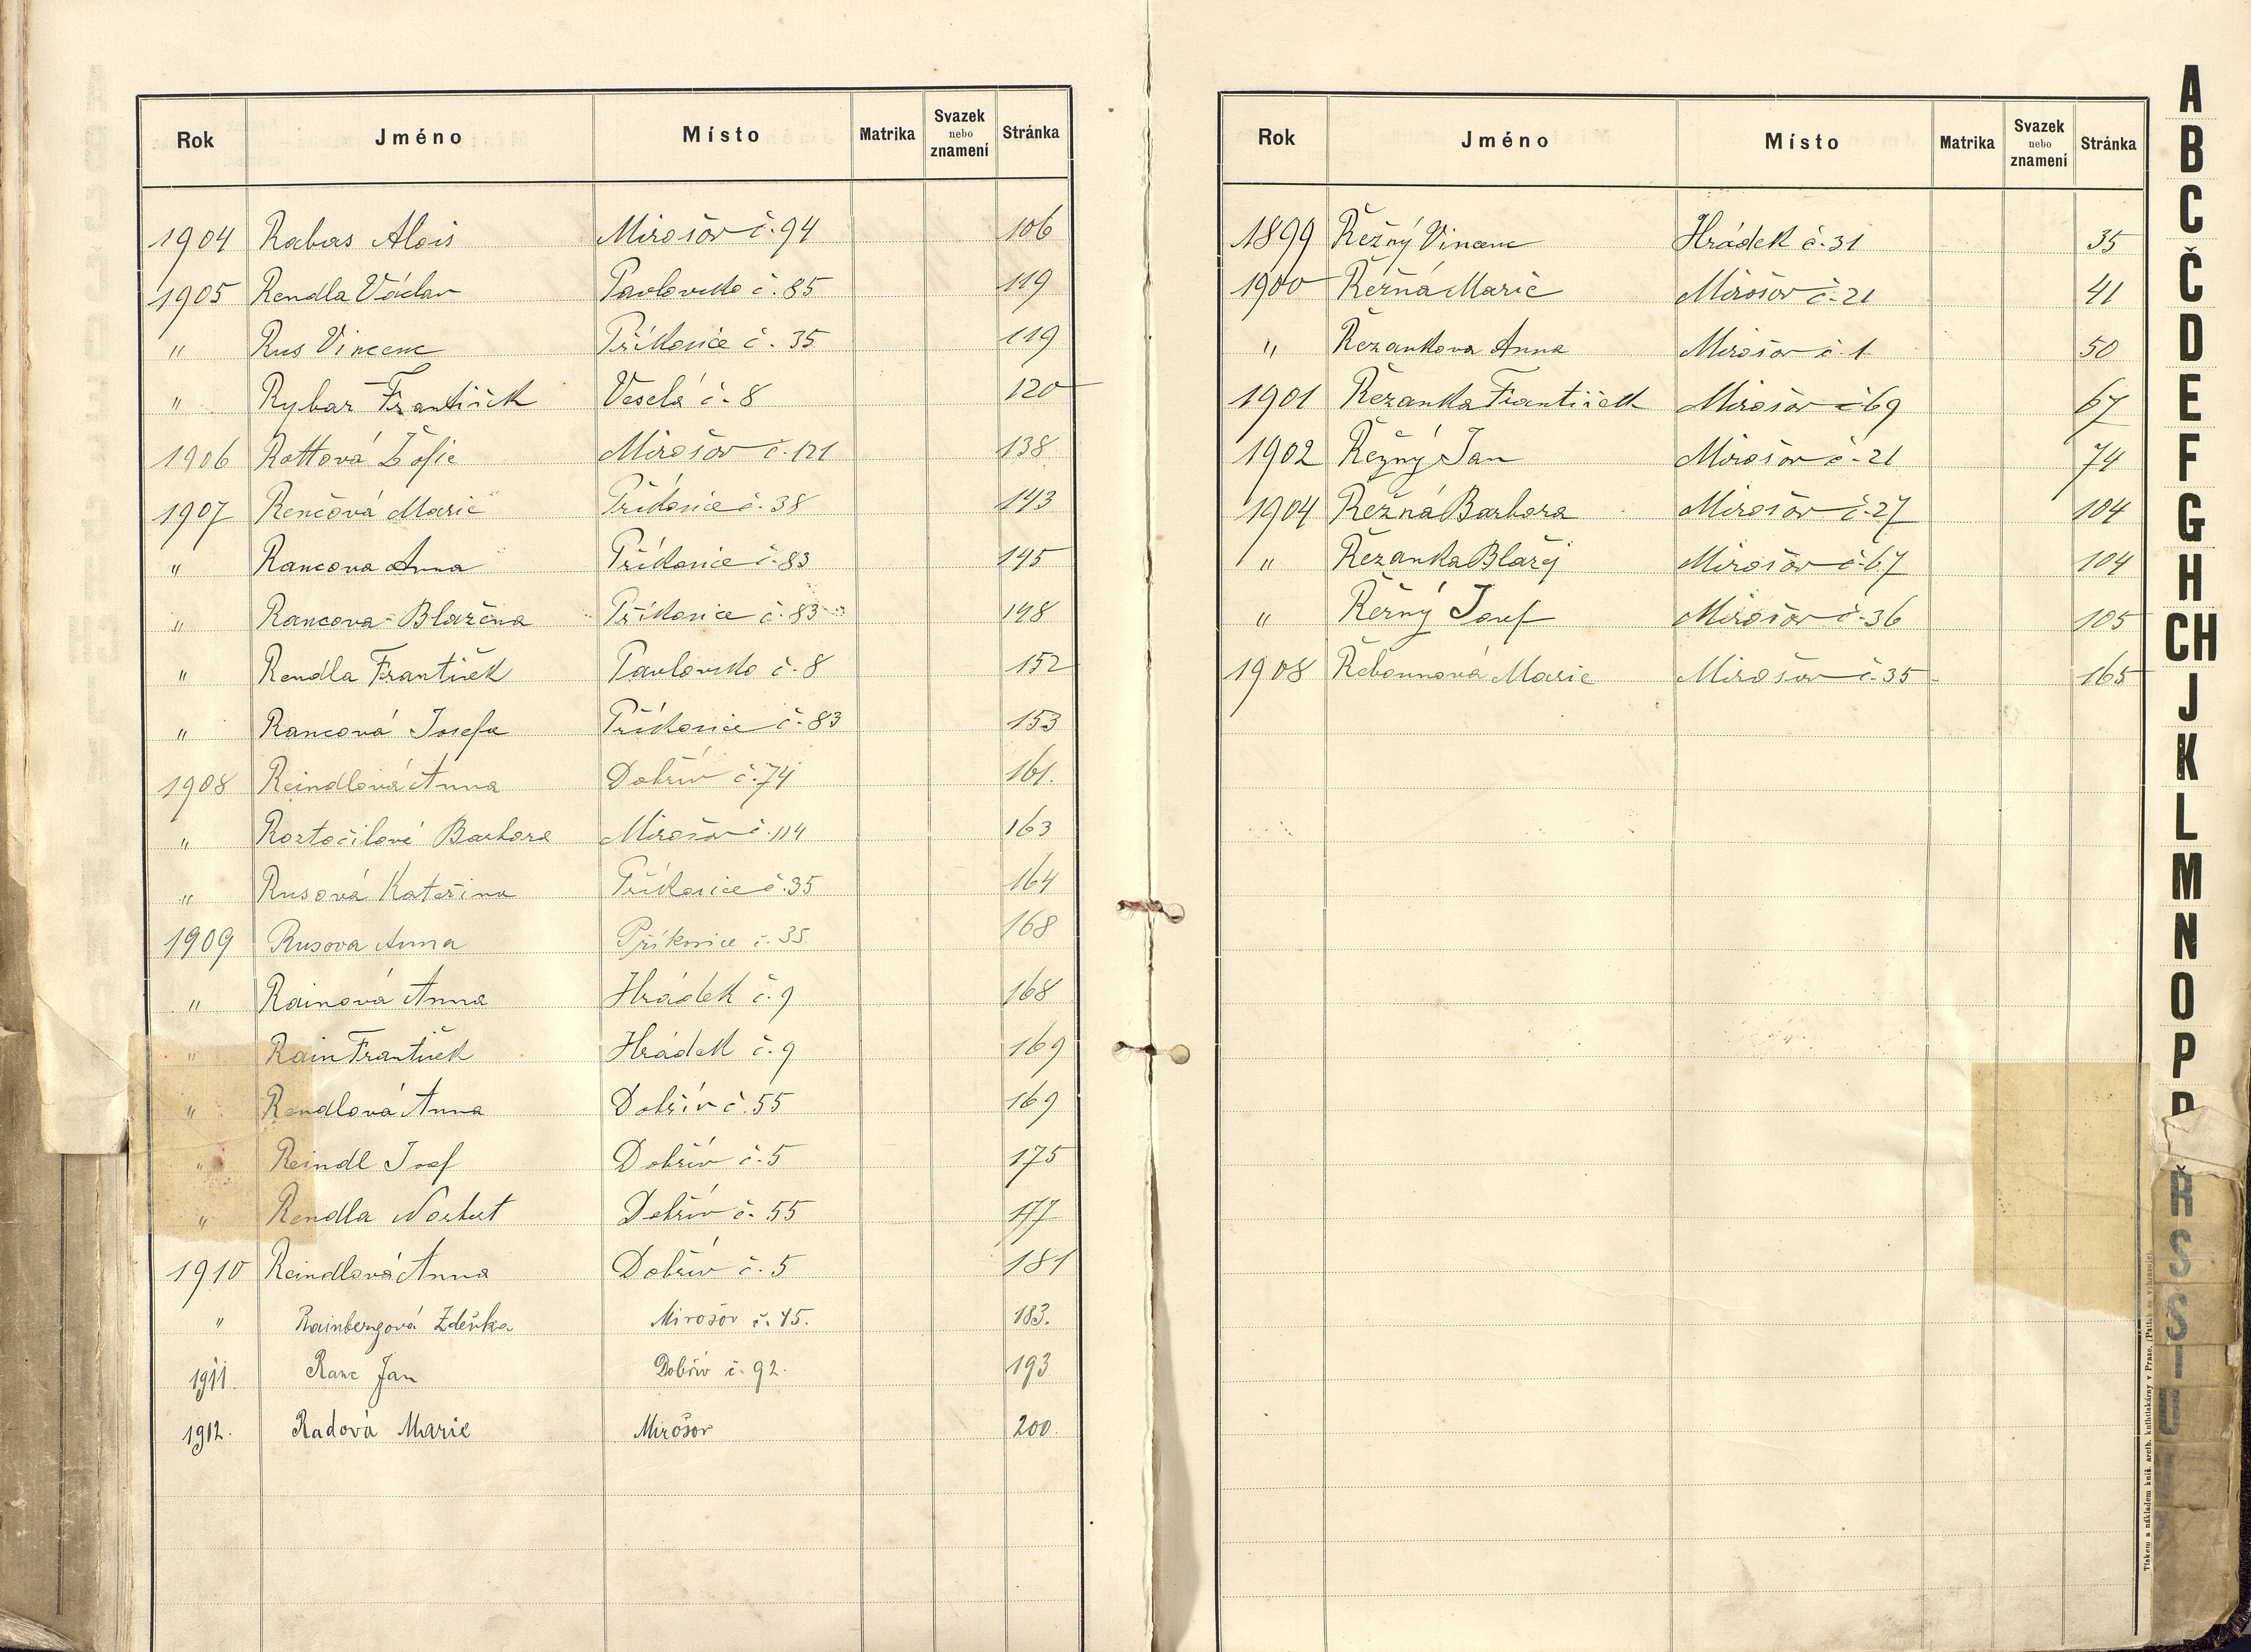 Rok Jméno Místo Matrika Svazek nebo znamení Stránka
1904 Rabas Alois Mirošov č. 94 106
1905 Rendla Václav Pavlovsko č. 85 119
" Rus Vincenc Příkosice č. 35 119
" Rybar František Veselá č. 8 120
1906 Rottová Žofie Mirošov č. 121 138
1907 Renčová Marie Příkosice č. 38 143
" Rancova Anna Příkosice č. 83 145
" Rancova Blažena Příkosice č. 83 148
" Rendla František Pavlovsko č. 8 152
" Rancová Josefa Příkosice č. 83 153
1908 Reindlová Anna Dobřív č. 74 161.
" Roztočilová Barbora Mirošov č. 114 163
" Rusová Kateřina Příkosice č. 35 164
1909 Rusova Anna Příkosice č. 35 168
" Rainová Anna Hrádek č. 9 168
" Rain František Hrádek č. 9 169
" Rendlová Anna Dobřív č. 55 169
" Reindl Josef Dobřív č. 5 175
" Rendla Norbert Dobřív č. 55 177
1910 Reindlová Anna Dobřív č. 5 181
" Rainbergová Zdeňka Mirošov č. 45. 183.
1911. Ranc Jan Dobřív č. 92. 193
1912. Radová Marie Mirošov 200.
Rok Jméno Místo Matrika Svazek nebo znamení Stránka
1899 Řežný Vincenc Hrádek č. 31 35
1900 Řežná Marie Mirošov č. 21 41
" Řezankova Anna Mirošov č. 1 50
1901 Řezanka František Mirošov č. 69 67
1902 Řežný Jan Mirošov č. 21 74
1904 Režná Barbora Mirošov č. 27 104
" Řezanka Blažej Mirošov č. 67 104
" Řežný Josef Mirošov č. 36 105
1908 Řebounová Marie Mirošov č. 35 165
A
B
C
Č
D
E
F
G
H
CH
J
K
L
M
N
O
P
R
Ř
S
Š
T
U
Tiskem a nákladem kníž. arcib. knihtiskárny v Praze.